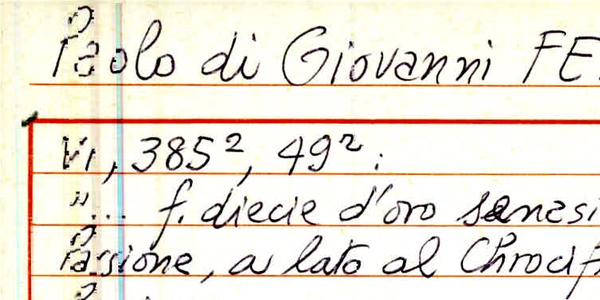 Paolo di Giovanni FE
VI, 385², 49²:
"... f. diecie d'oro sanesi
Passione, a lato al Chrocif